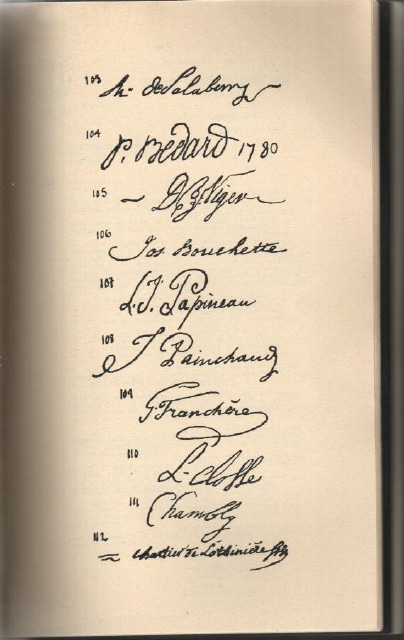 103 Ch. deSalaberry
104 P. Bedard 1780
105 DB Viger
106 Jos Bouchette
107 L. J. Papineau
108 J Painchaud
109 G. Franchère
110 L. Closse
111 Chambly
112 Chartier de Lotbinière